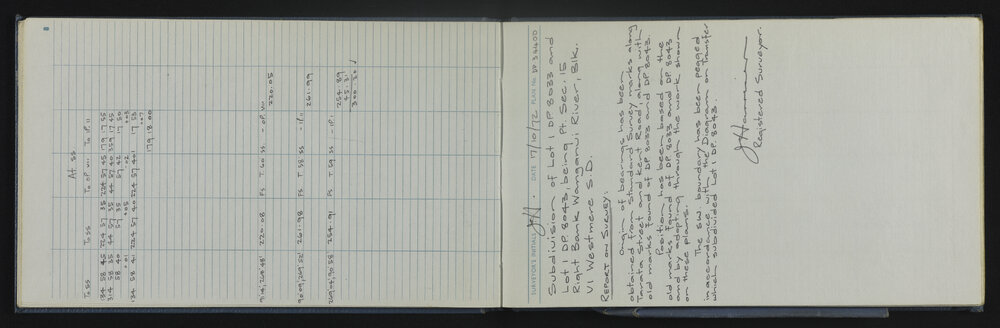 8
At SS
To SS To SS To OP VII To IP II
134 58 45 224 57 35 224 57 45 179 17 55
314 58 35 44 57 35 44 57 40 359 17 55
58 40 57 35 57 42 17 55
134 58 41 224 57 40 224 57 401 +05
179 18 00
220.08 FS T. 60 SS - OP. VII 220.05
261.98 FS T 58 SS - IP II 261.99
254.91 FS T 59 SS - IP I 254.89
45.31
300.20 /
SURVEYOR'S INITIALS DATE 17/10/72 PLAN No. DP 34400
Subdivision of Lot 1 DP 8033 and
Lot 1 DP. 8043, being Pt Sec. 15
Right Bank Wanganui River, Blk.
VI Westmere S.D.
REPORT ON SURVEY:
Origin of bearings has been
obtained from Standard Survey marks along
Tarata Street and Kent Road, along with
old marks found of DP 8033 and DP. 8043.
Position has been based on the
old marks found of DP. 8033 and DP 8043
and by adopting through the work shown
on these plans.
The SW boundary has been pegged
in accordance with the Diagram on transfer
which subdivided Lot 1 DP. 8043.
Registered Surveyor.